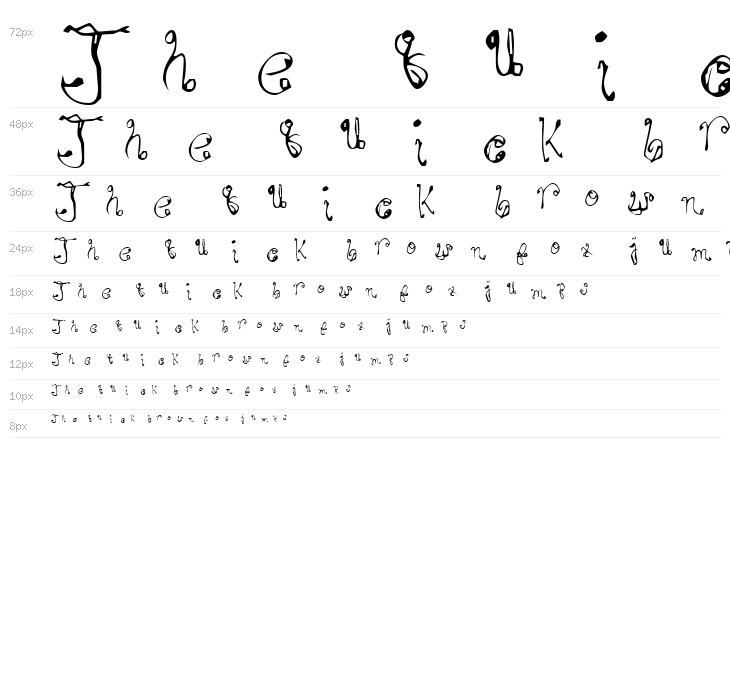 72px The quic
48px The quick br
36px The quick brown
24px The quick brown fox jum
18px The quick brown fox jumps
14px The quick brown fox jumps
12px The quick brown fox jumps
10px The quick brown fox jumps
8px The quick brown fox jumps